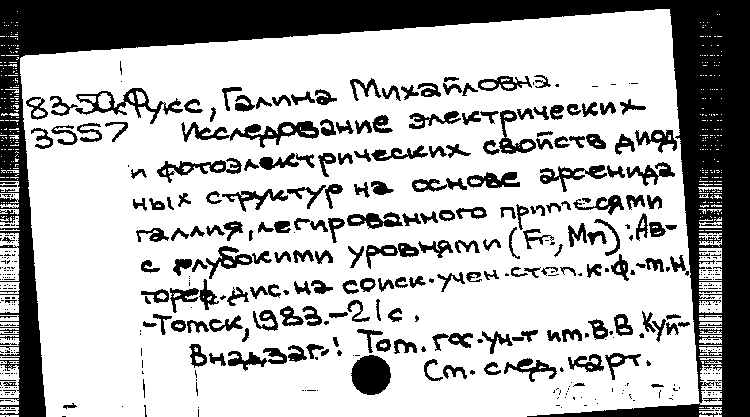 83-50к Фукс, Галина Михайловна.
3557 Исследование электрических
и фотоэлектрических свойств диод-
ных структур на основе арсенида
галлия, легированного примесями
с глубокими уровнями (Fe, Mn): Ав-
тореф. дис. на соиск. учен. степ. к.ф.-м.н.
-Томск, 1983.-21с.
В надзаг.: Том. гос. ун-т им. В.В. Куй-
См. след. карт.